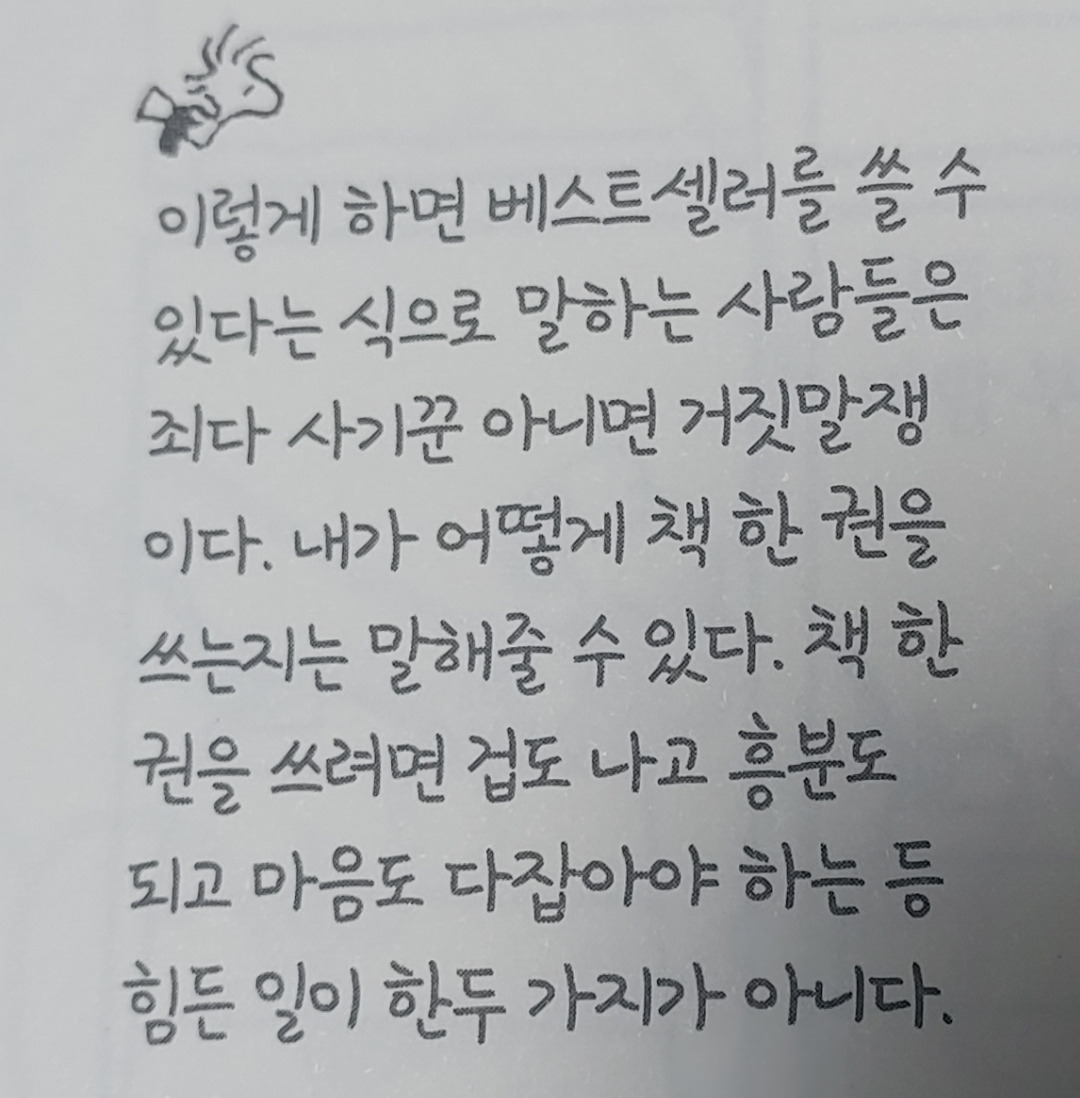 이렇게 하면 베스트셀러를 쓸 수
있다는 식으로 말하는 사람들은
죄다 사기꾼 아니면 거짓말쟁
이다. 내가 어떻게 책 한 권을
쓰는지는 말해줄 수 있다. 책 한
권을 쓰려면 겁도 나고 흥분도
되고 마음도 다잡아야 하는 등
힘든 일이 한두 가지가 아니다.